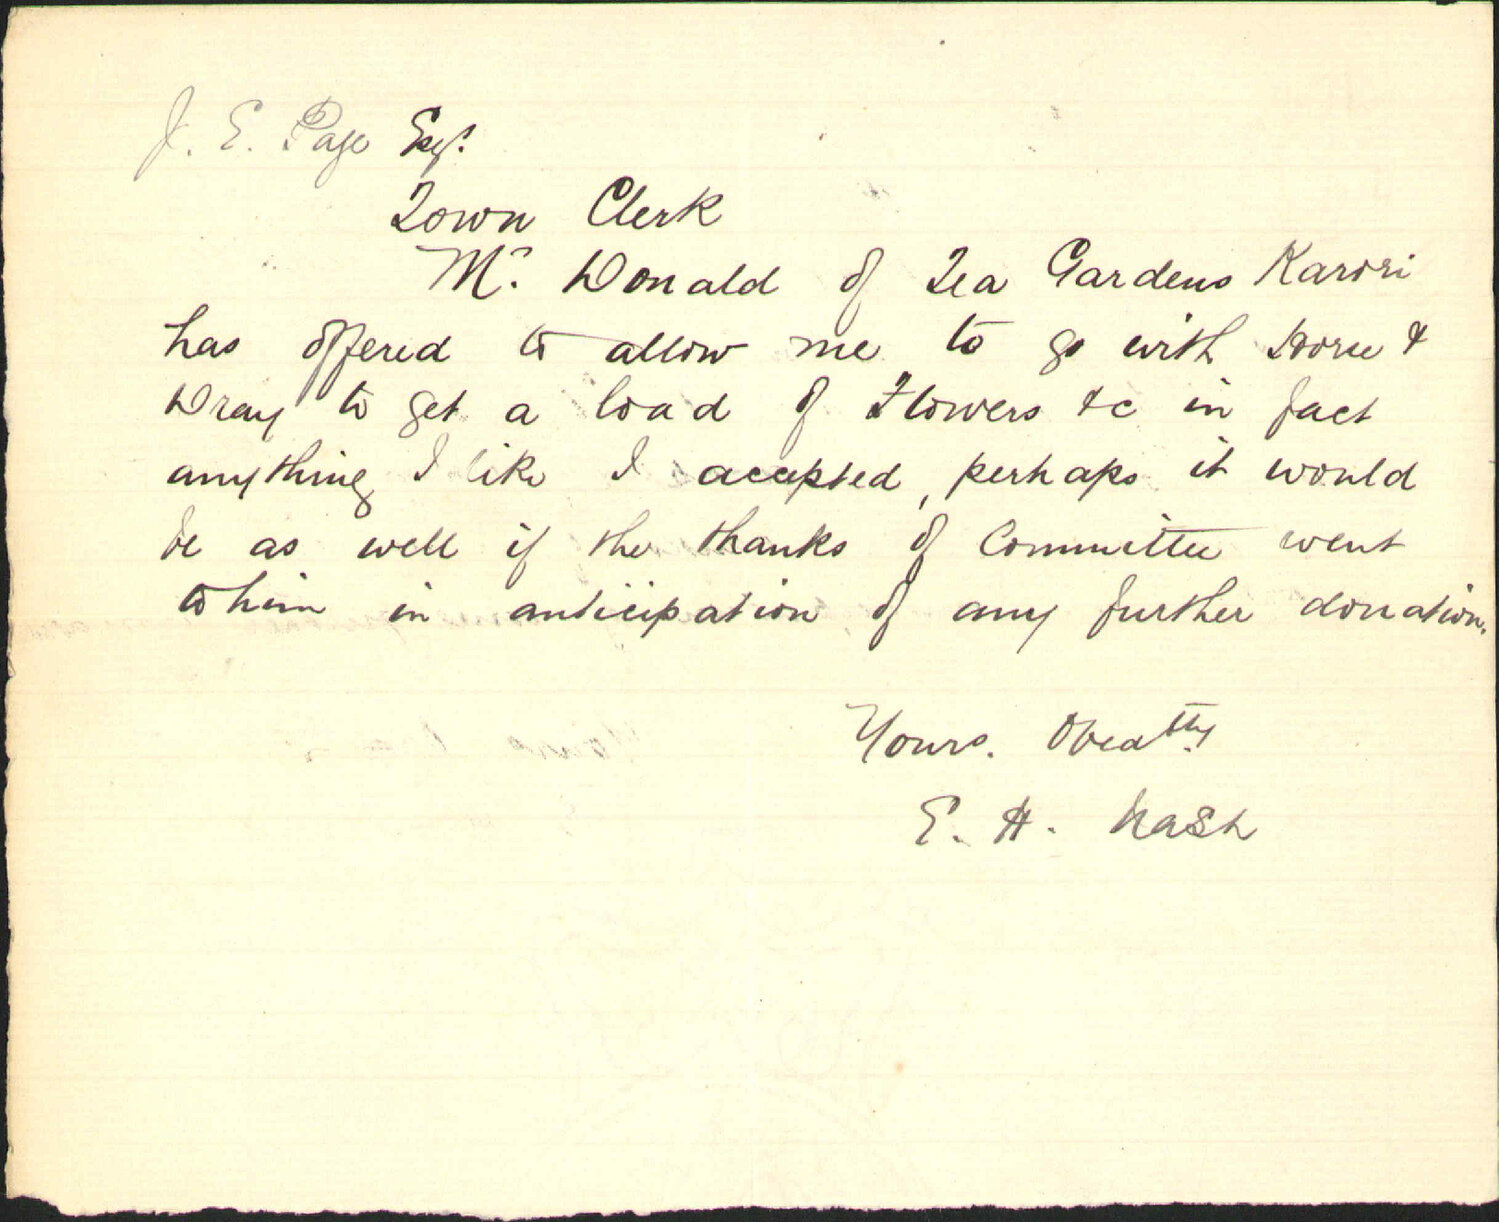 J. E. Page Esqr.
Town Clerk
Mr. Donald of Tea Gardens Karori
has offered to allow me to go with Horse &
Dray to get a load of Flowers &c in fact
anything I like I accepted, perhaps it would
be as well if the thanks of Committee went
to him in anticipation of any further donation.
Yours. Obedtly
E. H. Nash